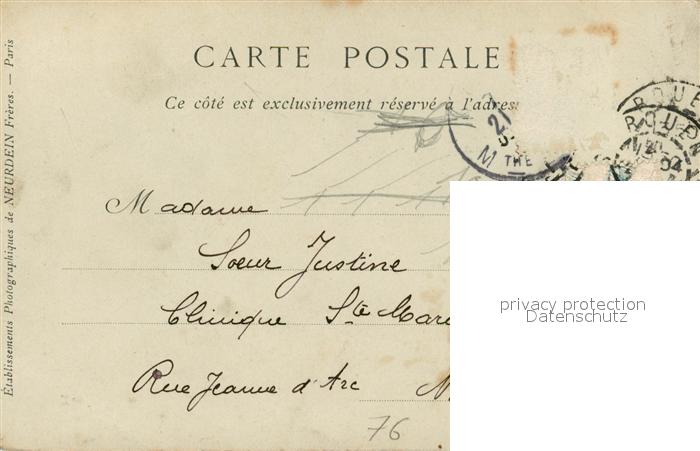 CARTE POSTALE
Ce côté est exclusivement réservé à l'adres
Madame
Soeur Justine
Clinique Ste Mar
Rue Jeanne d'Arc
76
Établissements Photographiques de NEURDEIN Frères. — Paris
21
M THE
ROUEN
privacy protection
Datenschutz